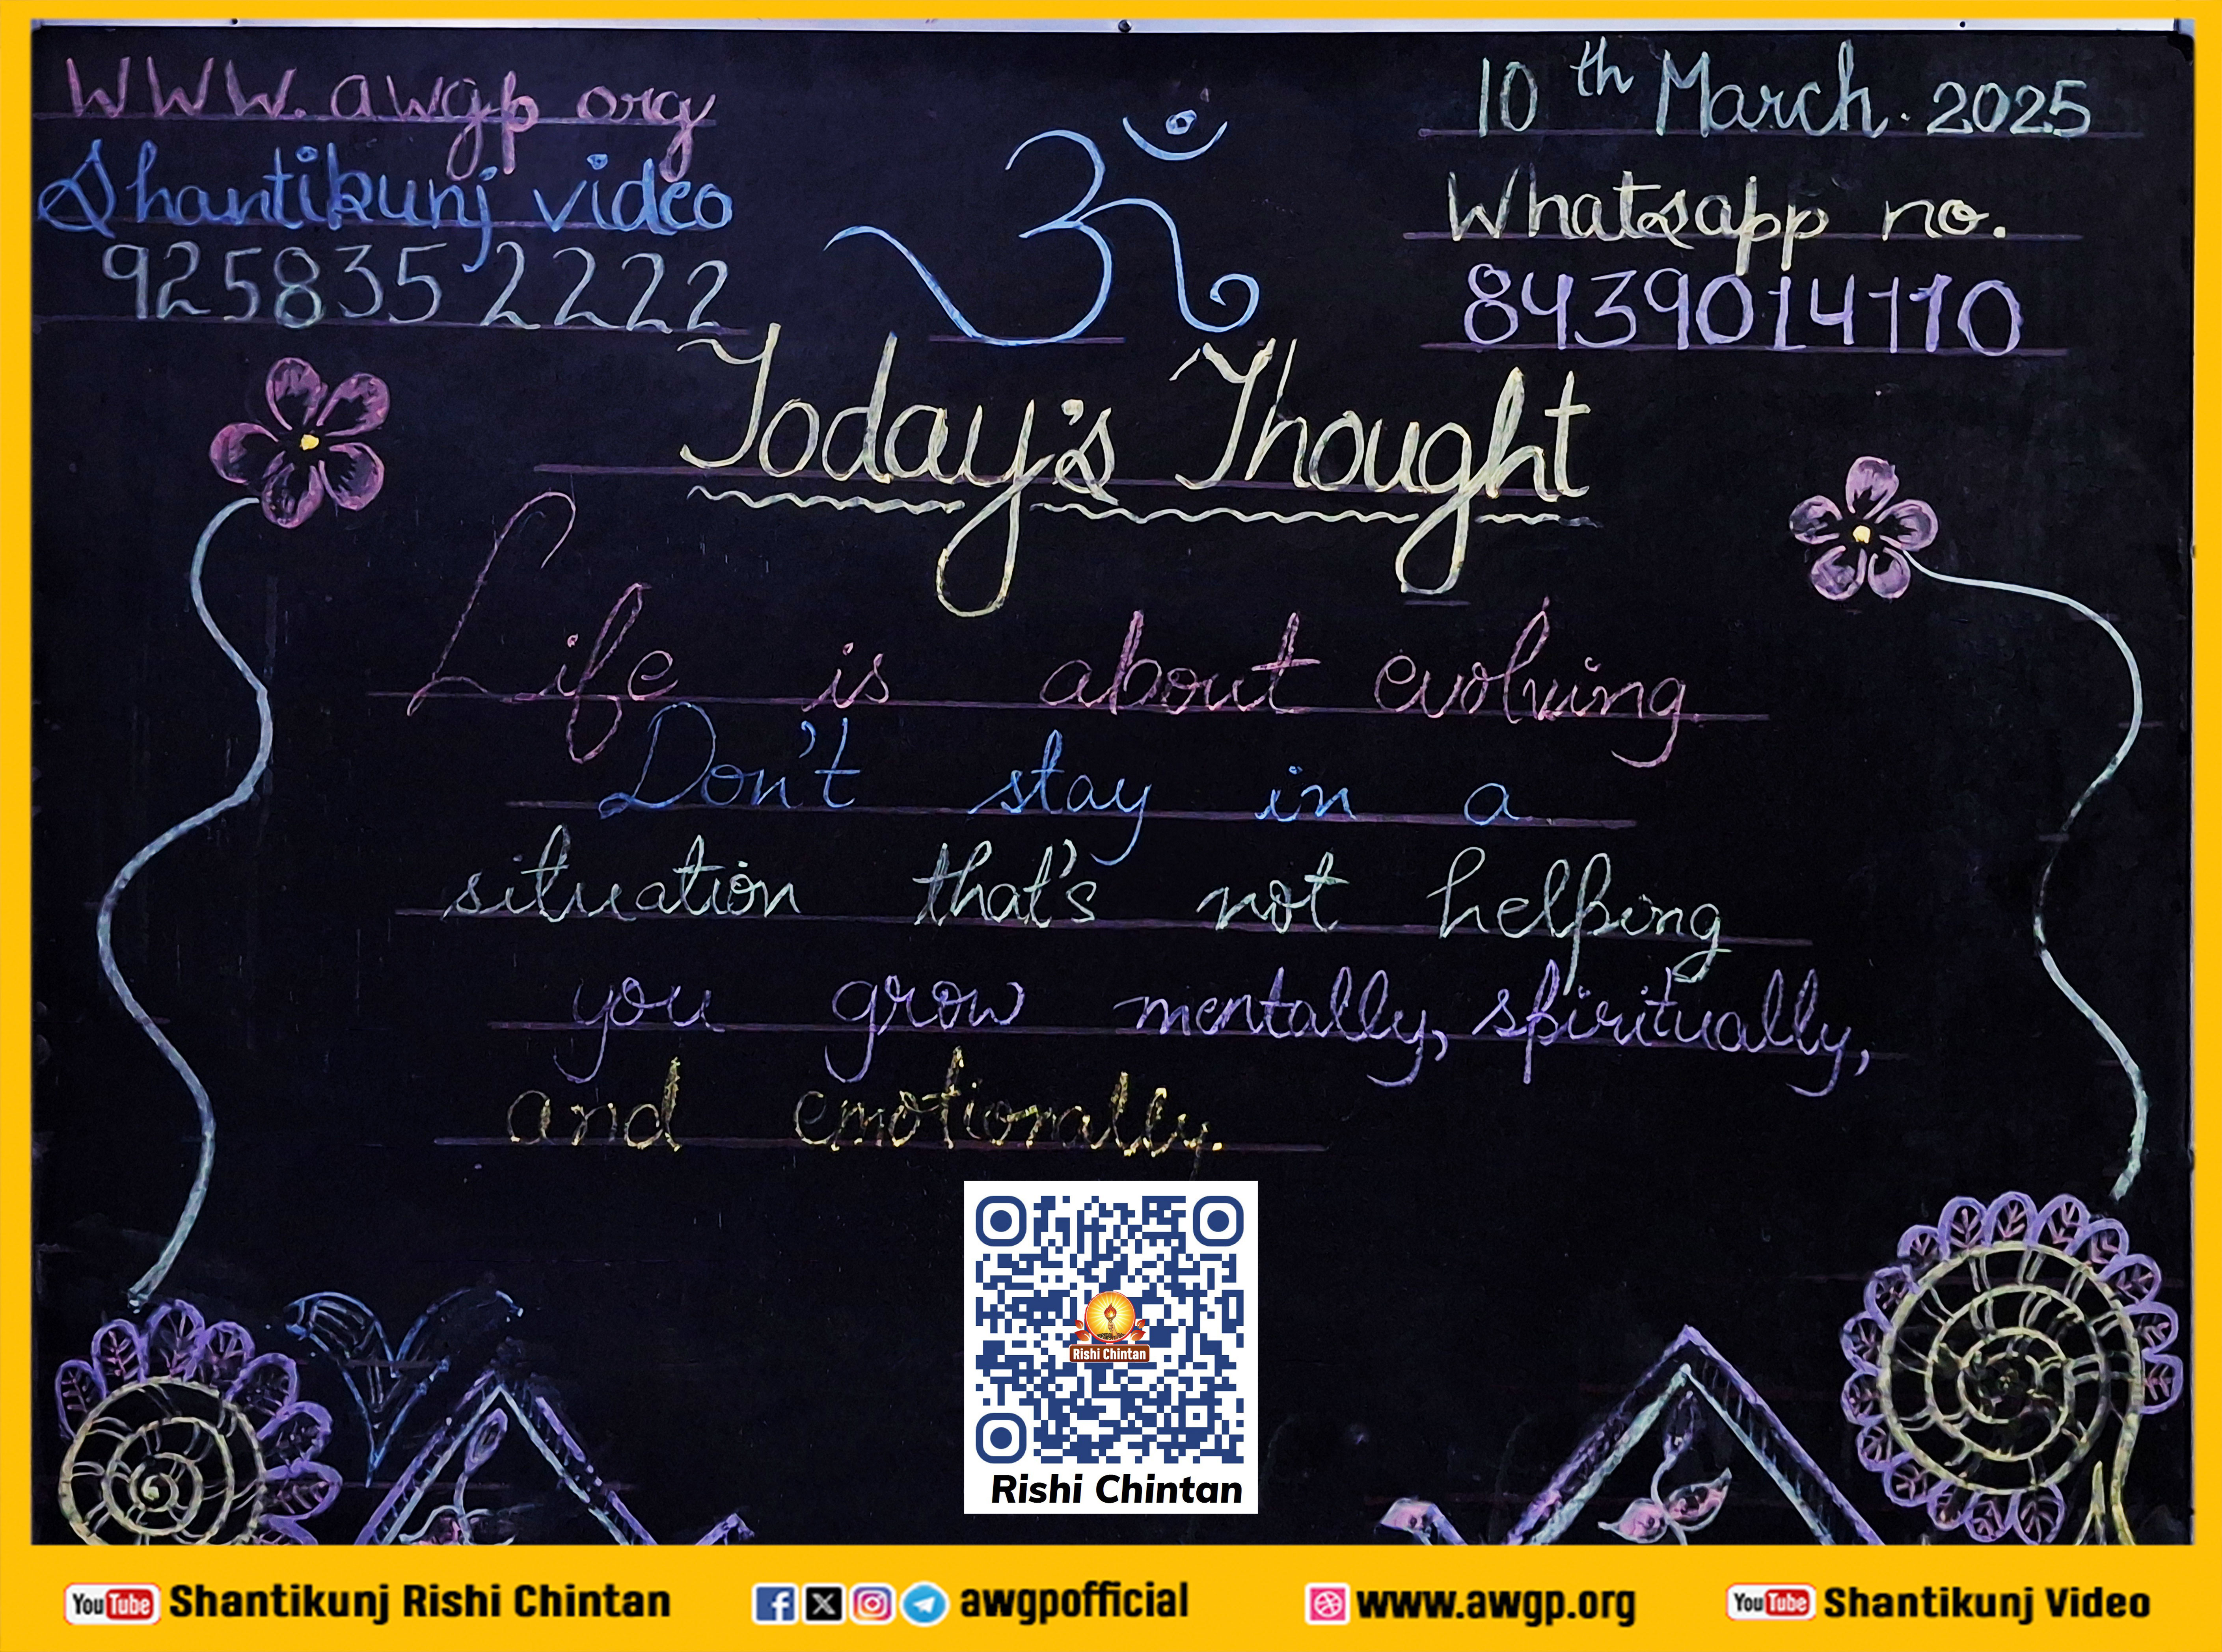 WWW.awgp org
Shantikunj video
925835 2222
ॐ
10th March. 2025
Whatsapp no.
8439014110
Today's Thought
Life is about evolving.
Don't stay in a
situation that's not helping
you grow mentally, spiritually,
and emotionally.
Rishi Chintan
Rishi Chintan
YouTube Shantikunj Rishi Chintan
awgpofficial
www.awgp.org
YouTube Shantikunj Video